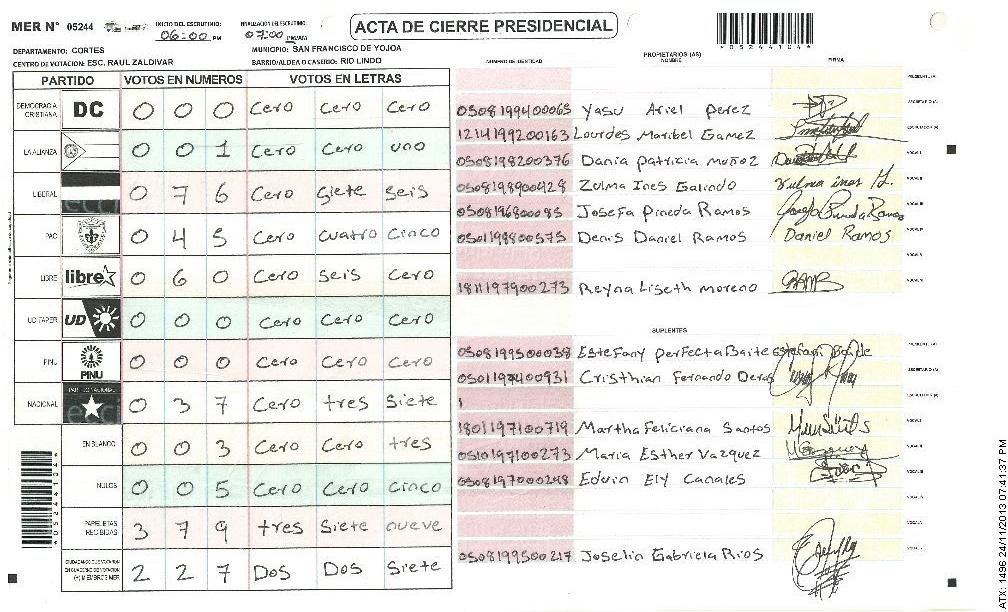 MER N° 05244 INICIO DEL ESCRUTINIO: 06:00 PM FINALIZACION DEL ESCRUTINIO: 07:00 PM ACTA DE CIERRE PRESIDENCIAL
DEPARTAMENTO: CORTES MUNICIPIO: SAN FRANCISCO DE YOJOA
CENTRO DE VOTACION: ESC. RAUL ZALDIVAR BARRIO/ALDEA O CASERIO: RIO LINDO
PARTIDO VOTOS EN NUMEROS VOTOS EN LETRAS
DEMOCRACIA CRISTIANA DC 0 0 0 Cero Cero Cero
LA ALIANZA 0 0 1 Cero Cero uno
LIBERAL 0 7 6 Cero Siete seis
PAC 0 4 5 Cero cuatro cinco
LIBRE libre 0 6 0 Cero seis Cero
UD FAPER UD 0 0 0 Cero Cero Cero
PINU PINU 0 0 0 Cero Cero Cero
NACIONAL PARTIDO NACIONAL 0 3 7 Cero tres Siete
EN BLANCO 0 0 3 Cero Cero tres
NULOS 0 0 5 Cero Cero cinco
PAPELETAS RECIBIDAS 3 7 9 tres Siete nueve
CIUDADANOS QUE VOTARON EN CUADERNO DE VOTACION (+) MIEMBROS MER 2 2 7 Dos Dos Siete
NUMERO DE IDENTIDAD PROPIETARIOS (AS) NOMBRE FIRMA
PRESIDENTE (A)
0508199400065 Yasu Ariel perez SECRETARIO (A)
1214199200163 Lourdes Maribel Gamez ESCRUTADOR (A)
0508198200376 Dania patricia muñoz VOCAL I
0508198900428 Zulma Ines Galindo VOCAL II
0508196800085 Josefa pineda Ramos VOCAL III
0501199800575 Denis Daniel Ramos Daniel Ramos
1811197900273 Reyna Liseth moreno
SUPLENTES
0508199500038 Estefany perfecta Baite PRESIDENTE (A)
0501197400931 Cristhian Fernando Deras SECRETARIO (A)
1 ESCRUTADOR (A)
1801197100719 Martha Feliciana Santos VOCAL I
0510197100273 Maria Esther Vazquez
0508197000248 Edwin Ely Canales
0508199500217 Joselin Gabriela Rios
ATX: 1496 24/11/2013 07:41:37 PM